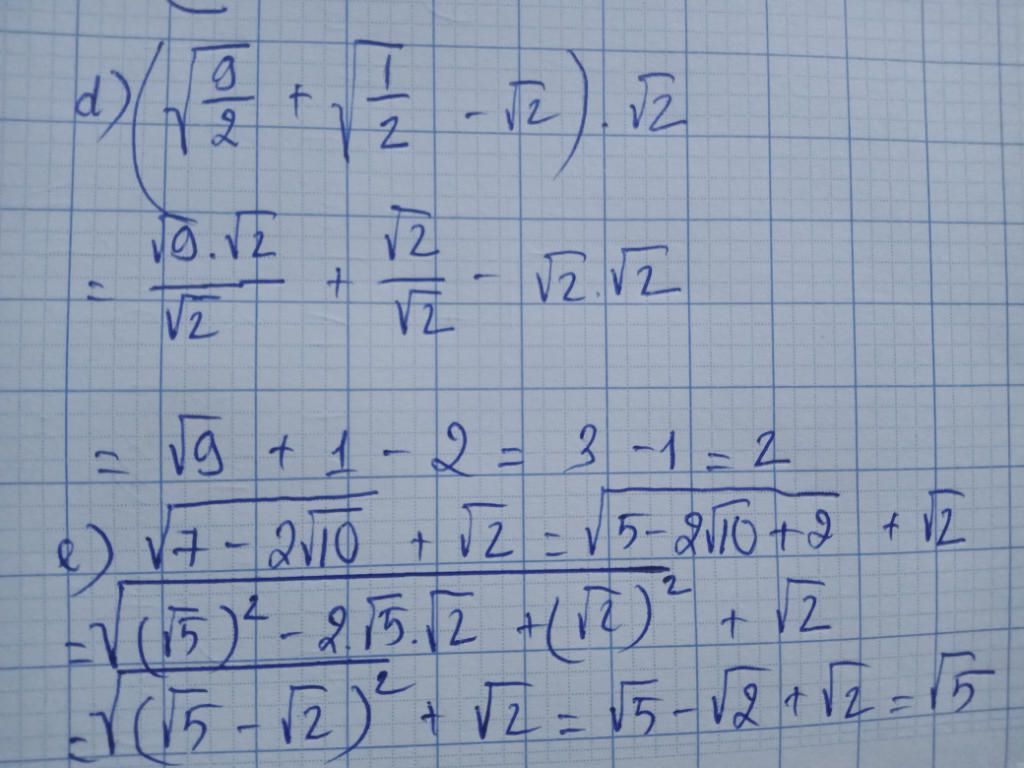 d) (√(9/2) + √(1/2) - √2) . √2
= (√9 . √2)/√2 + √2/√2 - √2 . √2
= √9 + 1 - 2 = 3 - 1 = 2
e) √(7 - 2√10) + √2 = √(5 - 2√10 + 2) + √2
= √((√5)² - 2.√5.√2 + (√2)²) + √2
= √((√5 - √2)²) + √2 = √5 - √2 + √2 = √5